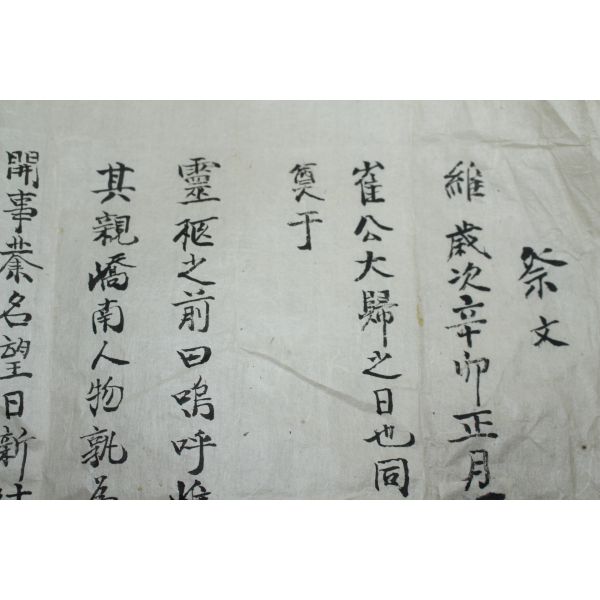 祭文
維歲次辛卯正月
崔公大歸之日也同
奠于
靈柩之前曰嗚呼惟
其親嶠南人物孰爲
開事業名望日新